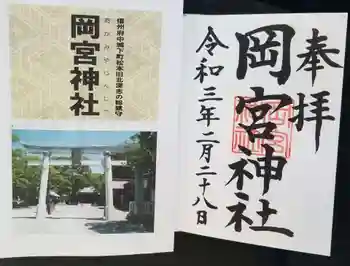 信州府中城下町松本旧北深志の総鎮守
岡宮神社
おかのみやじんじゃ
奉拝
岡宮神社
令和三年二月二十八日